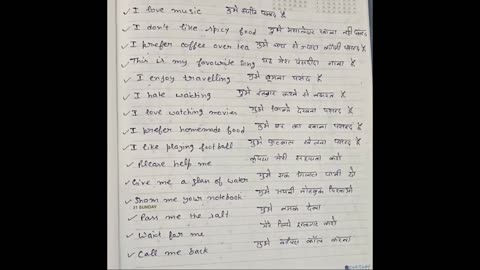 I love music मुझे संगीत पसन्द है
I don't like spicy food मुझे मसालेदार खाना नहीं पसन्द
I prefer coffee over tea मुझे चाय से ज्यादा कॉफी पसन्द है
This is my favourite song यह मेरा पसंदीदा गाना है
I enjoy travelling मुझे घूमना पसन्द है
I hate waiting मुझे इंतजार करने से नफरत है
I love watching movies मुझे फिल्में देखना पसन्द है
I prefer homemade food मुझे घर का खाना पसन्द है
I like playing football मुझे फुटबाल खेलना पसन्द है
Please help me कृपया मेरी सहायता करो
Give me a glass of water मुझे एक गिलास पानी दो
Show me your notebook मुझे अपनी नोटबुक दिखाओ
31 SUNDAY
Pass me the salt मुझे नमक देना
Wait for me मेरे लिये इन्तजार करो
Call me back मुझे वापस कॉल करना